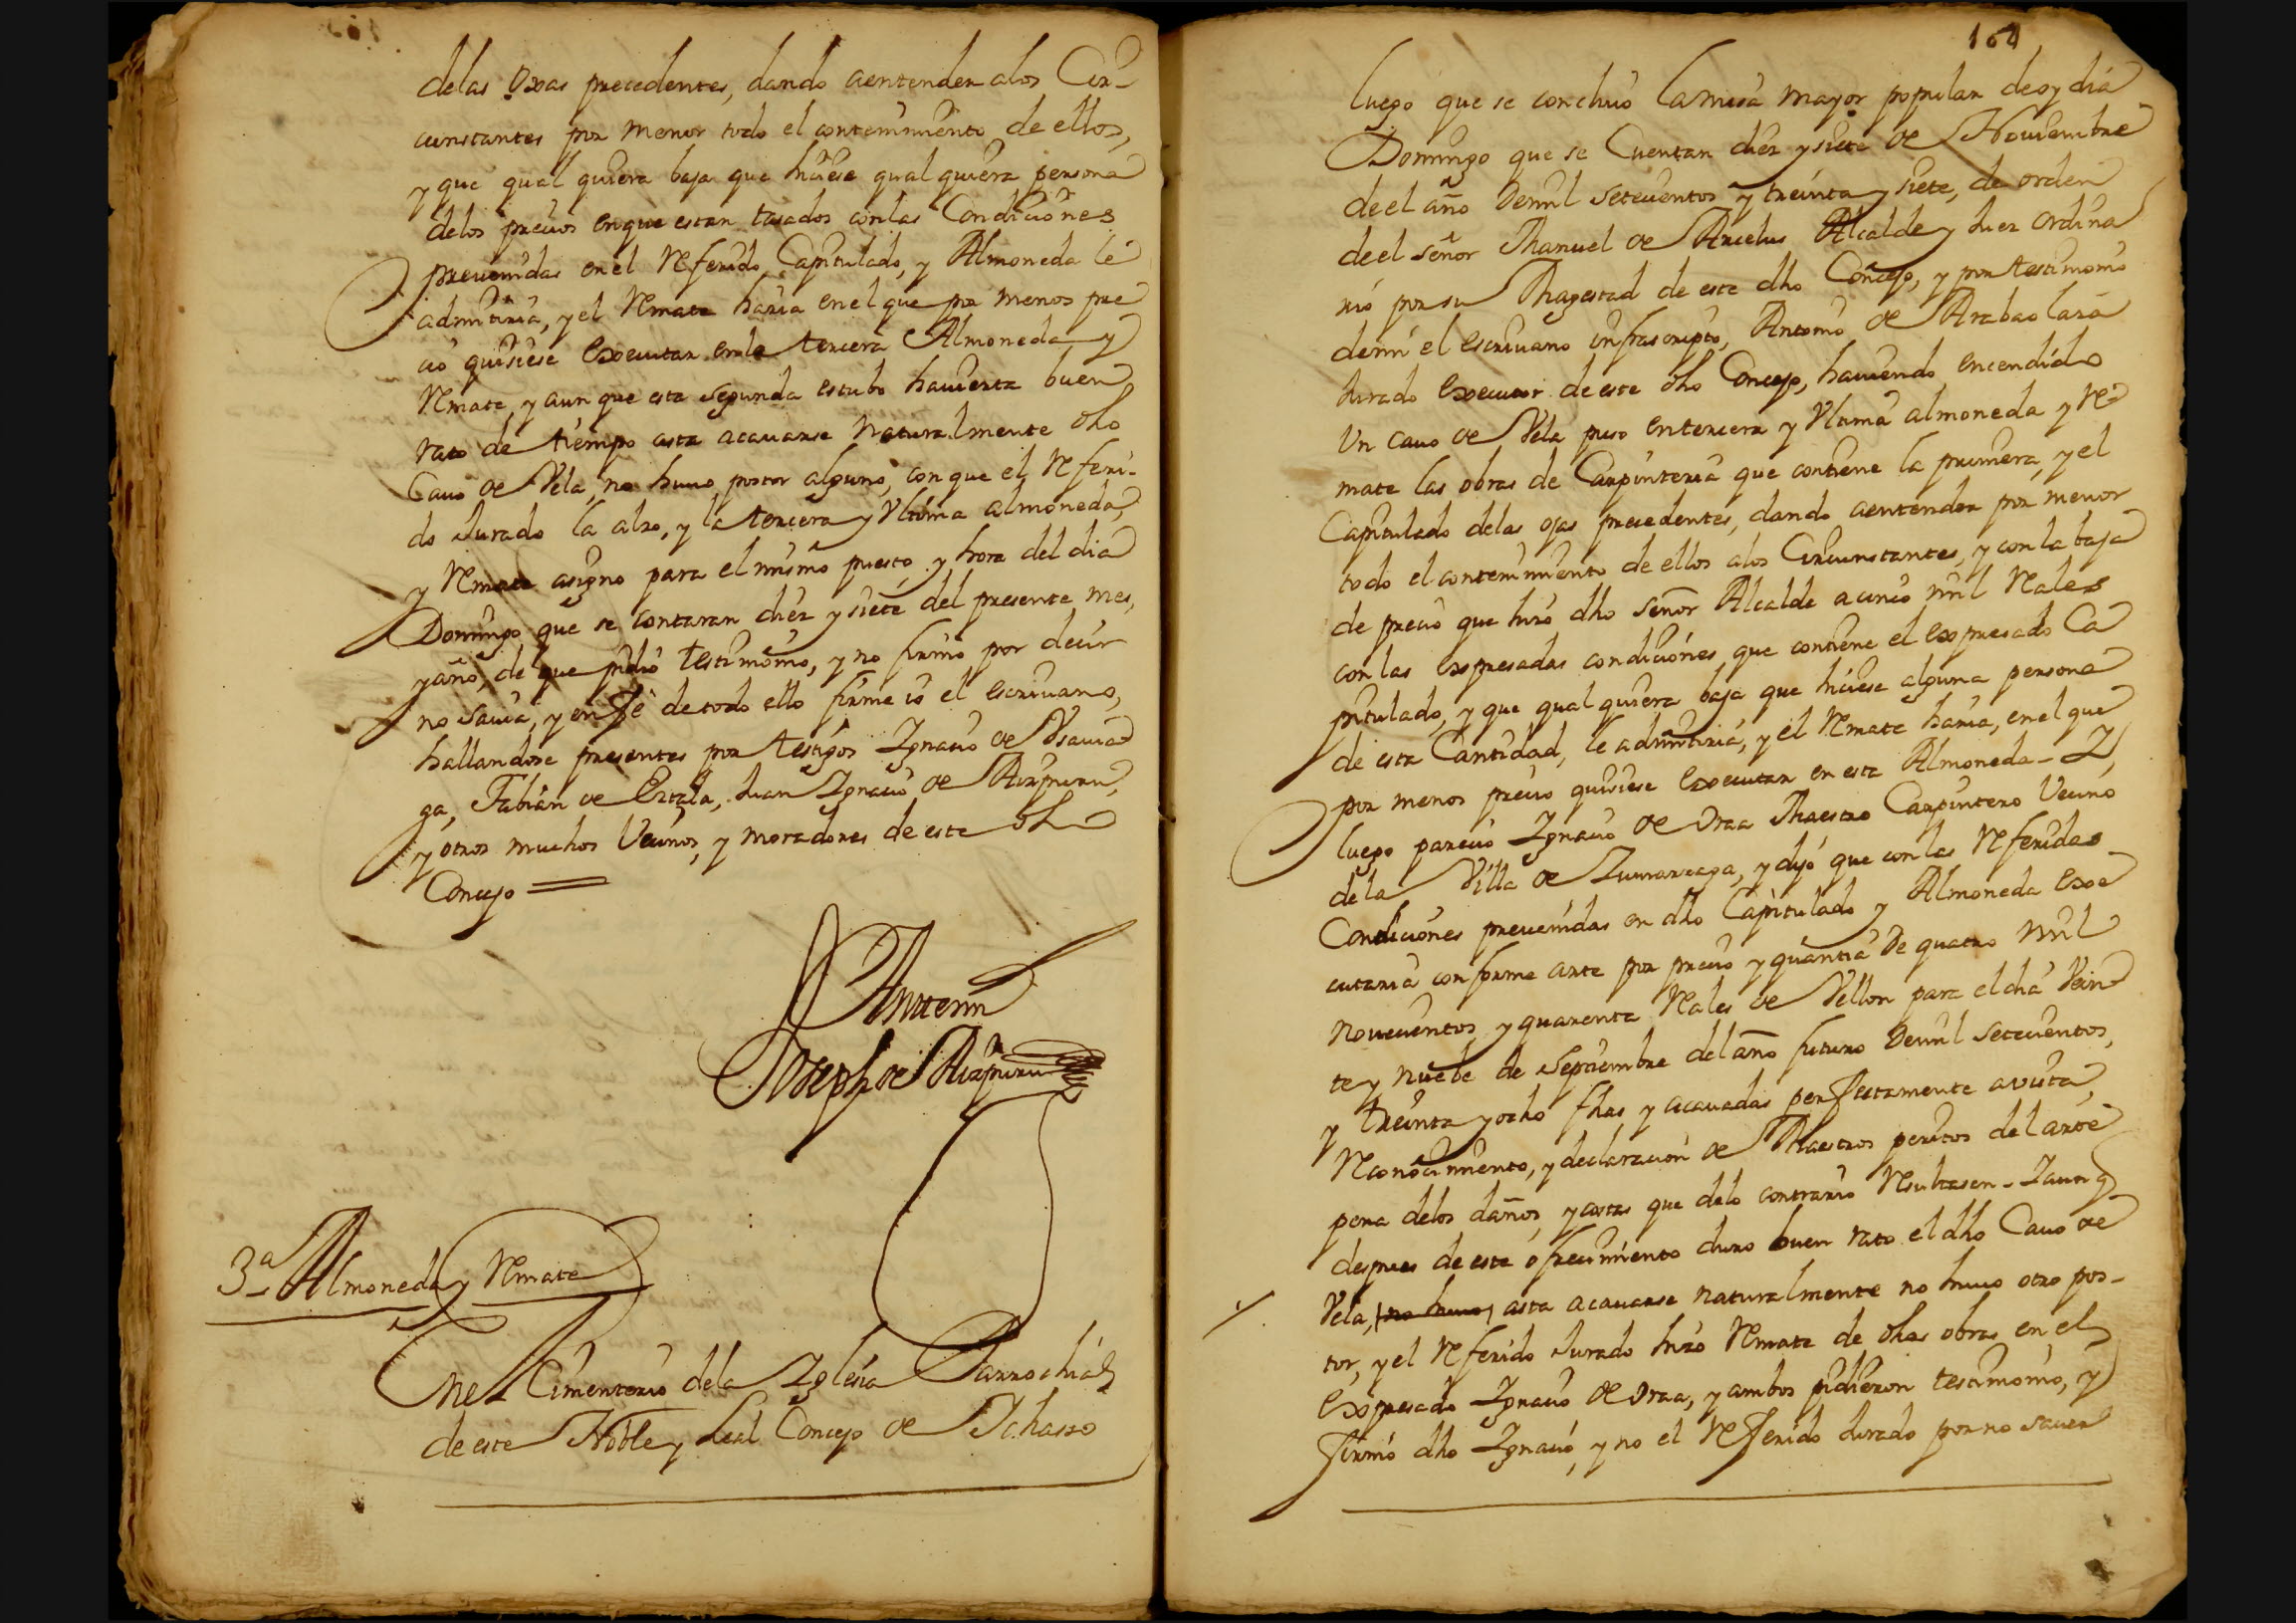 delas oxas precedentes, dando aentender alos Cir-
cunstantes por menor todo el contenimiento de ellos,
y que qual quiera baja que hiciese qual quiera persona
delos precios enque estan tasados con las Condiciones
preuenidas en el Referido Capitulado, y Almoneda le
admitiria, y el Remate haria en el que por menos pre
cio quisiese executar en la tercera Almoneda y
Remate, y aun que esta segunda estubo hauierta buen
rato de tiempo asta acauarse naturalmente dho
Cauo de Vela, no huuo postor alguno, con que el Referi-
do Jurado la alzo, y la tercera y Vltima almoneda,
y Remate asigno para el mismo puesto, y hora del dia
Domingo que se contaran diez y siete del presente mes,
y año, de que pidio testimonio, y no firmo por decir
no sauia, y en fe de todo ello firme io el escriuano,
hallandose presentes por testigos Ignacio de Vsauia
ga, Fabian de Eztala, Juan Ignacio de Aizpuru,
y otros muchos Vecinos, y moradores de este dho
Concejo =
Antemi
Joseph de Aizpuru
3ª Almoneda y Remate
En el Cimenterio dela Iglesia Parrochial
de este Noble y Leal Concejo de Ichasso
164
luego que se concluio la misa mayor popular de oy dia
Domingo que se Cuentan diez y siete de Nouiembre
de el año demil setecientos y treinta y siete, de orden
de el señor Manuel de Arcelus Alcalde y Juez ordina
rio por su Magestad de este dho Concejo, y por testimonio
demi el escriuano infrascripto, Antonio de Arabaolaza
Jurado executor de este dho Concejo, hauiendo encendido
Vn cauo de Vela puso entercera y Vltima almoneda y Re-
mate las obras de Carpinteria que contiene la primera, y el
Capitulado delas ojas precedentes, dando aentender por menor
todo el contenimiento de ellos alos Circunstantes, y con la baja
de precio que hizo dho señor Alcalde a cinco mil Reales
con las expresadas condiciones que contiene el expresado Ca
pitulado, y que qual quiera baja que hiciese alguna persona
de esta Cantidad, le admitiria, y el Remate haria, en el que
por menos precio quisiese executar en esta Almoneda - I
luego parecio Ignacio de Oraa Maestro Carpintero Vecino
de la Villa de Zumarraga, y dijo que con las Referidas
Condiciones preuenidas en dho Capitulado y Almoneda exe
cutaria conforme arte por precio y quantia de quatro mil
nouecientos y quarenta Reales de Vellon para el dia Vein
te y nuebe de Septiembre del año futuro demil setecientos,
y treinta y ocho fhas y acauadas perfectamente a vista,
Reconocimiento, y declaracion de Maestros peritos del arte
pena delos daños, y costas que delo contrario Resultasen - I aunq
despues de este ofrecimiento duro buen rato el dho Cauo de
Vela, (no huuo) asta acauarse naturalmente no huuo otro pos-
tor, y el Referido Jurado hizo Remate de dhas obras en el
expresado Ignacio de Oraa, y ambos pidieron testimonio, y
firmo dho Ignacio, y no el Referido Jurado por no sauer